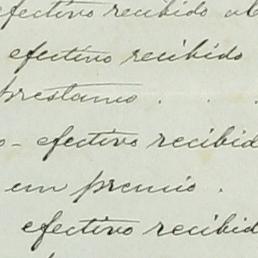 efectivo recibido
efectivo recibido
prestamo . . .
- efectivo recibid
un premio .
efectivo recibid